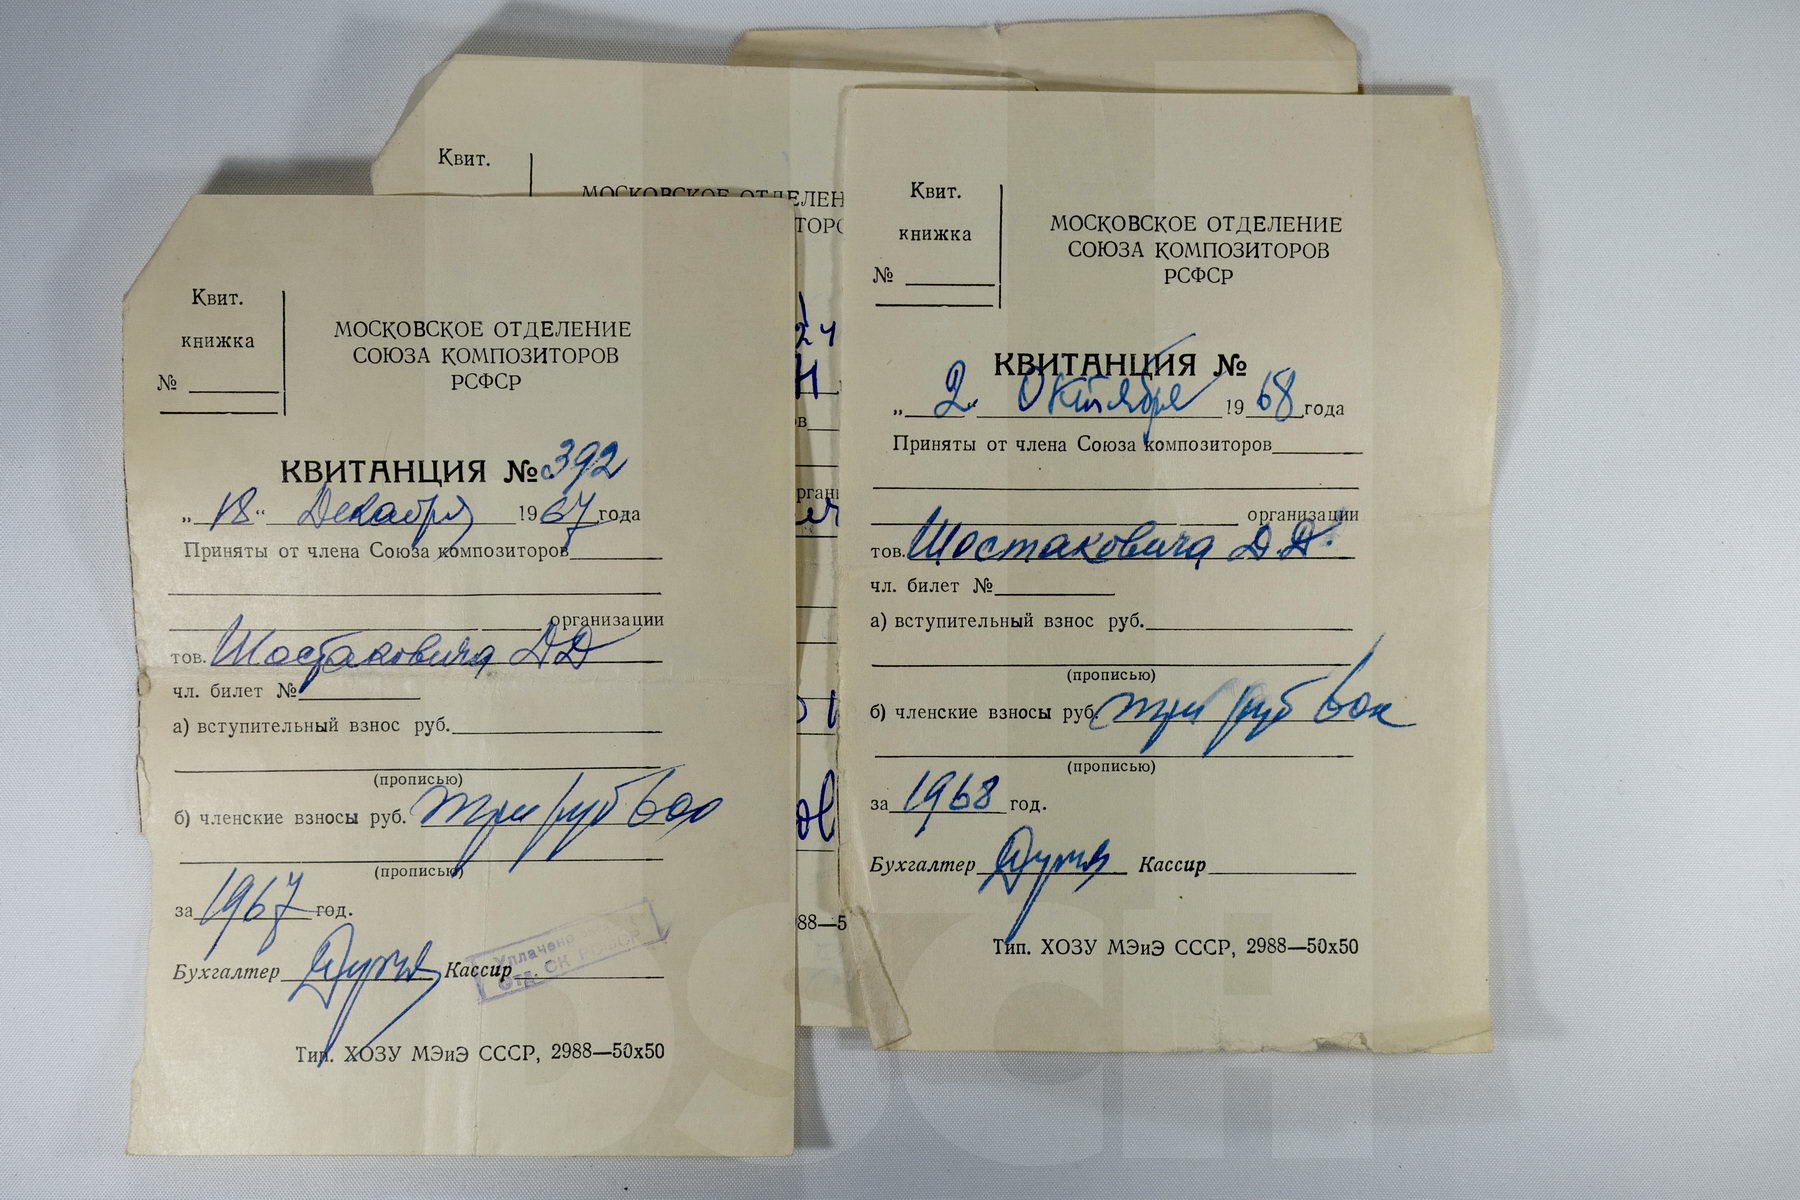 Квит.
книжка
№
МОСКОВСКОЕ ОТДЕЛЕНИЕ
СОЮЗА КОМПОЗИТОРОВ
РСФСР
КВИТАНЦИЯ № 392
„ 18 “ Декабря 1967 года
Приняты от члена Союза композиторов
организации
тов. Шостаковича ДД
чл. билет №
а) вступительный взнос руб.
(прописью)
б) членские взносы руб. три руб 60
(прописью)
за 1967 год.
Бухгалтер Кассир
Уплачено
Отд. СК РСФСР
Тип. ХОЗУ МЭиЭ СССР, 2988—50х50
Квит.
МОСКОВСКОЕ ОТДЕЛЕН
ТОРО
88—5
Квит.
книжка
№
МОСКОВСКОЕ ОТДЕЛЕНИЕ
СОЮЗА КОМПОЗИТОРОВ
РСФСР
КВИТАНЦИЯ №
„ 2 Октября 1968 года
Приняты от члена Союза композиторов
организации
тов. Шостаковича Д.Д.
чл. билет №
а) вступительный взнос руб.
(прописью)
б) членские взносы руб. три руб 60к
(прописью)
за 1968 год.
Бухгалтер Кассир
Тип. ХОЗУ МЭиЭ СССР, 2988—50х50
DSCH